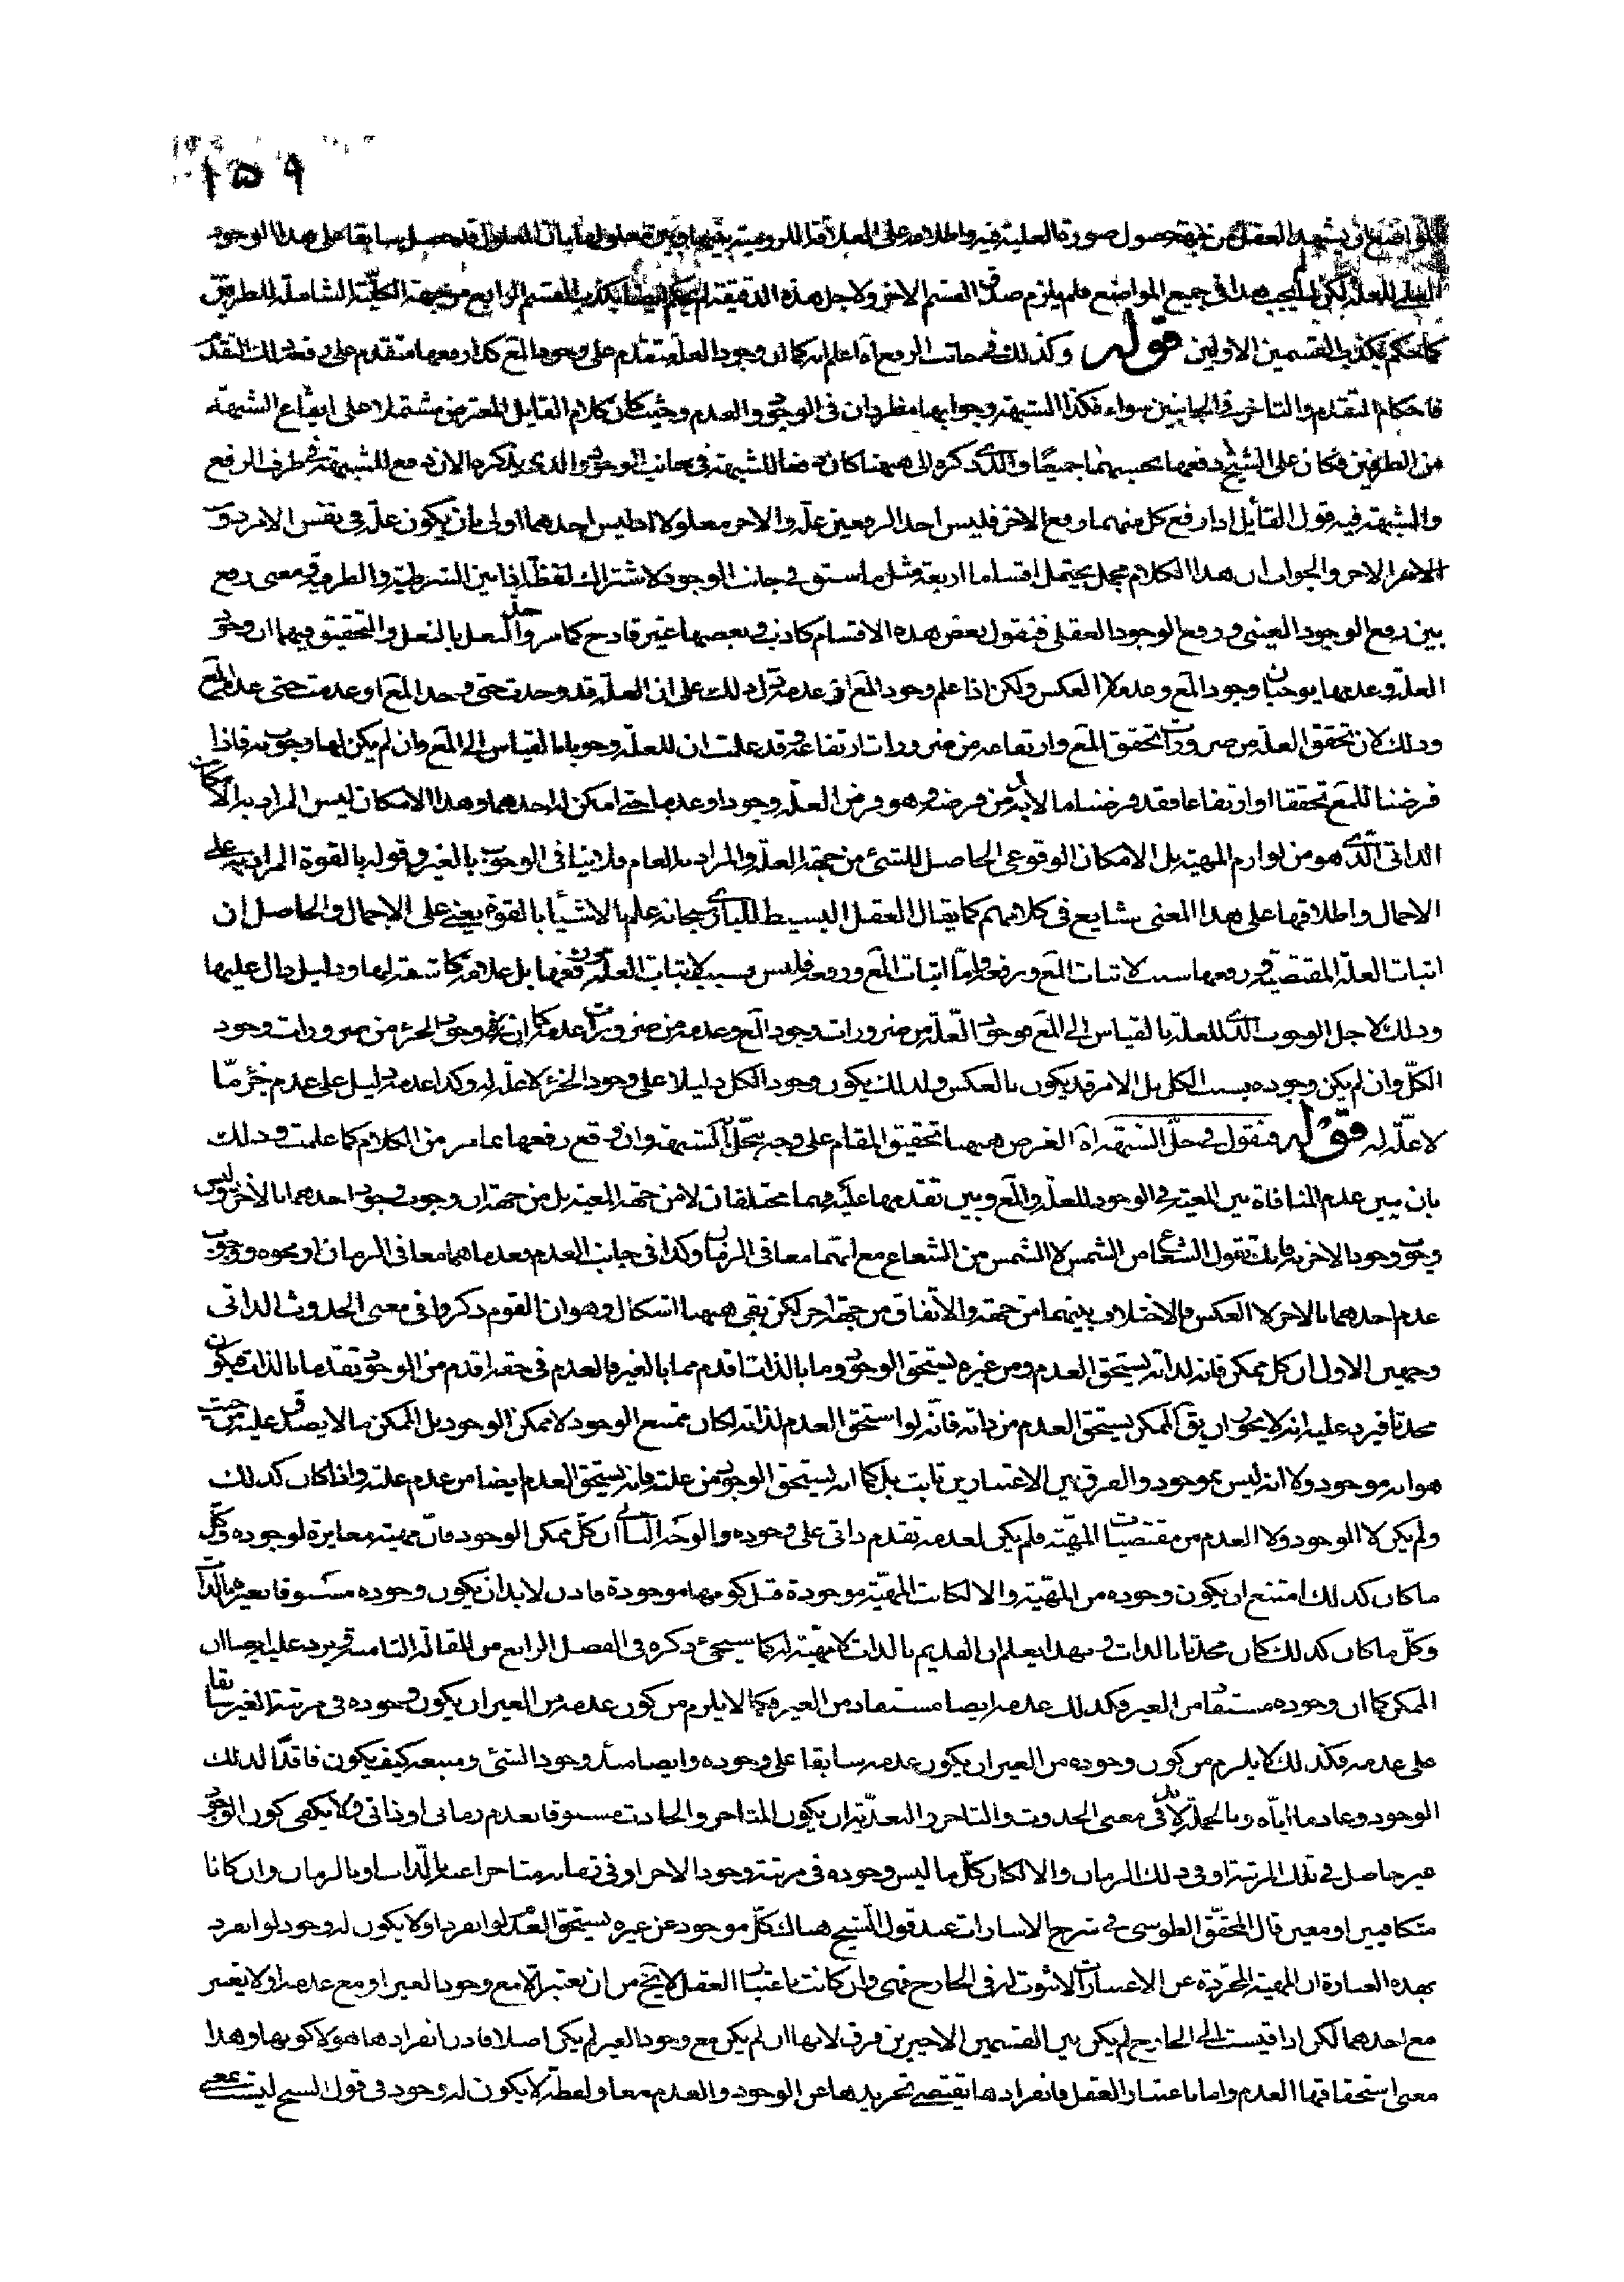 ١٥٩
المواضع ان يشهد العقل من جهة حصول صورة العلية فيه واطلاعه على العلاقة اللزومية بينها وبين معلولها بان المعلول قد حصل سابقا على هذا الوجود
العقلي للعلة لكن لم يجب هذا في جميع المواضع فلم يلزم صدق القسم الاخر ولاجل هذه الدقيقة لم يحكم ايضا بكذب القسم الرابع من جهة الكلية الشاملة للطرفين
كما حكم بكذب القسمين الاولين قوله وكذلك في جانب الرفع آه اعلم انه كما ان وجود العلة متقدم على وجود المع كذا رفعها متقدم على رفعه ذلك التقدم
فاحكام التقدم والتاخر في الجانبين سواء فكذا الشبهة وجوابها مطردان في الوجود والعدم وحيث كان كلام القايل المعترض مشتملا على ايقاع الشبهة
من الطرفين فكان على الشيخ دفعها بحسبهما جميعًا والذي ذكره الى ههنا كان دفعا للشبهة في جانب الوجود والذي يذكره الان دفع للشبهة في طرف الرفع
والشبهة فيه قول القايل اذا رفع كل منهما رفع الاخر فليس احد الرفعين علة والاخر معلولا اذ ليس احدهما اولى بان يكون علة في نفس الامر دون
الامر الاخر والجواب ان هذا الكلام مجمل يحتمل اقساما اربعة مثل ما سبق في جانب الوجود لاشتراك لفظ اذا بين الشرطية والظرفية ومعنى رفع
بين رفع الوجود العيني ورفع الوجود العقلي فنقول بعض هذه الاقسام كاذب وبعضها غير قادح كما مر حذو النعل بالنعل والتحقيق فيهما ان وجود
العلة وعدمها يوجبان وجود المع وعدمه لا العكس ولكن اذا علم وجود المع او عدمه دل ذلك على ان العلة قد وجدت حتى وجد المع او عدمت حتى عدم المع
وذلك لان تحقق العلة من ضرورات تحقق المع وارتفاعه من ضرورات ارتفاعه وقد علمت ان للعلة وجوبا بالقياس الى المع وان لم يكن لها وجوب به فاذا
فرضنا للمع تحققا او ارتفاعا فقد فرضنا ما لابد من فرضه وهو فرض العلة وجودا وعدما حتى امكن له احدهما وهذا الامكان ليس المراد به الامكان
الذاتي الذي هو من لوازم المهية بل الامكان الوقوعي الحاصل للشئ من جهة العلة والمراد به العام فلا ينافي الوجوب بالغير وقوله بالقوة المراد به على
الاجمال واطلاقها على هذا المعنى شايع في كلامهم كما يقال العقل البسيط للباري سبحانه علم بالاشيأ بالقوة يعني على الاجمال والحاصل ان
اثبات العلة المقتضية ورفعها سبب لاثبات المع ورفعه واما اثبات المع ورفعه فليس سببا لاثبات العلة ورفعها بل علامة كاشفة لها ودليل دال عليها
وذلك لاجل الوجوب الذي للعلة بالقياس الى المع فوجود العلة من ضرورات وجود المع وعدمه من ضرورات عدمه كما ان وجود الجزء من ضرورات وجود
الكل وان لم يكن وجوده بسبب الكل بل الامر قد يكون بالعكس ولذلك يكون وجود الكل دليلا على وجود الجزء لا علة له وكذا عدمه دليل على عدم جزء ما
لا علة له قوله فنقول في حل الشبهة آه الغرض ههنا تحقيق المقام على وجه ينحل به الشبهة وان وقع رفعها بما مر من الكلام كما علمت وذلك
بان يبين عدم المنافاة بين المعية في الوجود للعلة والمع وبين تقدمها عليه فهما مختلفان لا من جهة المعية بل من جهة ان وجوب وجود احدهما بالاخر وليس
وجوب وجود الاخر به فانك تقول الشعاع من الشمس لا الشمس من الشعاع مع انهما معا في الزمان وكذا في جانب العدم فعدماهما معا في الزمان او نحوه ووجوب
عدم احدهما بالاخر لا العكس فالاختلاف بينهما من جهة والاتفاق من جهة اخرى لكن بقي ههنا اشكال وهو ان القوم ذكروا في معنى الحدوث الذاتي
وجهين الاول ان كل ممكن فانه لذاته يستحق العدم ومن غيره يستحق الوجود وما بالذات اقدم مما بالغير فالعدم في حقه اقدم من الوجود تقدما بالذات فيكون
محدثا فيرد عليه انه لا يجوز ان يق الممكن يستحق العدم من ذاته فانه لو استحق العدم لذاته لكان ممتنع الوجود لا ممكن الوجود بل الممكن ما لا يصدق عليه من حيث
هو انه موجود ولا انه ليس بموجود والفرق بين الاعتبارين ثابت بل كما انه يستحق الوجود من علته فانه يستحق العدم ايضا من عدم علته واذا كان كذلك
ولم يكن لا الوجود ولا العدم من مقتضيات المهية فلم يكن لعدمه تقدم ذاتي على وجوده والوجه الثاني ان كل ممكن الوجود فان مهيته مغايرة لوجوده وكل
ما كان كذلك امتنع ان يكون وجوده من المهية والا لكانت المهية موجودة قبل كونها موجودة فاذن لابد ان يكون وجوده مسبوقا بغيره بالذات
وكل ما كان كذلك كان محدثا بالذات وبهذا يعلم ان القديم بالذات لا مهية له كما سيجئ ذكره في الفصل الرابع من المقالة الثامنة ويرد عليه ايضا ان
الممكن كما ان وجوده مستفاد من الغير فكذلك عدمه ايضا مستفاد من الغير فكما لا يلزم من كون عدمه من الغير ان يكون وجوده في مرتبة الغير سابقا
على عدمه فكذلك لا يلزم من كون وجوده من الغير ان يكون عدمه سابقا على وجوده وايضا مبدأ وجود الشئ ومنبعه كيف يكون فاقدا لذلك
الوجود وعادما اياه وبالجملة لابد في معنى الحدوث والتاخر والبعدية ان يكون المتاخر والحادث مسبوقا بعدم زماني او ذاتي ولا يكفي كون الوجود
غير حاصل في تلك المرتبة او في ذلك الزمان والا لكان كل ما ليس وجوده في مرتبة وجود الاخر او في زمانه متاخرا عنه بالذات او بالزمان وان كانا
متكافيين او معين قال المحقق الطوسي في شرح الاشارات عند قول الشيخ هناك كل موجود عن غيره يستحق العدم لو انفرد او لا يكون له وجود لو انفرد
بهذه العبارة ان المهية المجردة عن الاعتبارات لا ثبوت لها في الخارج فهي وان كانت باعتبار العقل لا يخ من ان تعتبر اما مع وجود الغير او مع عدمه او لا يعتبر
مع احدهما لكن اذا قيست الى الخارج لم يكن بين القسمين الاخيرين فرق لانها ان لم يكن مع وجود الغير لم يكن اصلا فاذن انفرادها هو لا كونها وهذا
معنى استحقاقها العدم واما باعتبار العقل فانفرادها يقتضي تجريدها عن الوجود والعدم معا ولفظة لا يكون له وجود في قول الشيخ ليست بمعنى